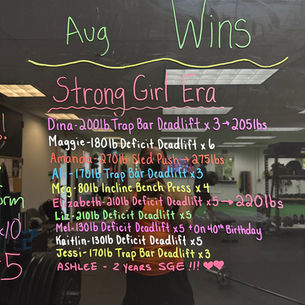 Aug Wins
Strong Girl Era
Dina-200lb Trap Bar Deadlift x 3 → 205lbs
Maggie-180lb Deficit Deadlift x 6
Amanda-270lb Sled Push → 275lbs
Al-170lb Trap Bar Deadlift x3
Meg-80lb Incline Bench Press x 4
Elizabeth-210lb Deficit Deadlift x5 → 220lbs
Liz-210lb Deficit Deadlift x5
Mel-130lb Deficit Deadlift x5 + On 40th Birthday
Kaitlin-130lb Deficit Deadlift x5
Jessi-170lb Trap Bar Deadlift x3
ASHLEE - 2 YEARS SGE !!! ♥♥
!
orm
x10
5